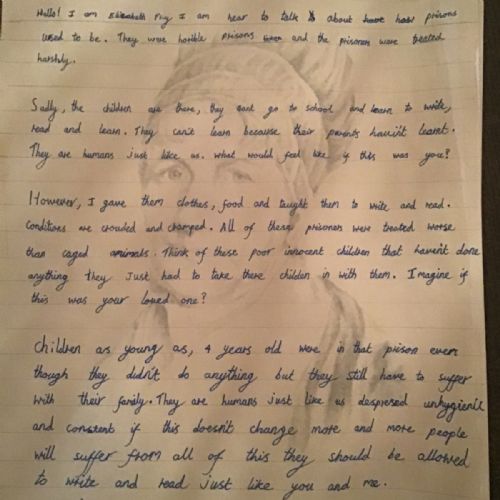 Hello! I am Elizabeth Fry I am hear to talk about how prisons
used to be. They were horrible prisons and the prisoners were treated
harshly.
Sadly, the children are there, they cant go to school and learn to write,
read and learn. They can't learn because their parents havin't learnt.
They are humans just like us. what would feel like if this was you?
However, I gave them clothes, food and taught them to write and read.
Conditions are crouded and cramped. All of these prisoners were treated worse
than caged animals. Think of these poor innocent children that haven't done
anything they just had to take there childen in with them. Imagine if
this was your loved one?
Children as young as, 4 years old were in that prison even
though they didn't do anything but they still have to suffer
with their family. They are humans just like us despresed unhygienic
and constent if this doesn't change more and more people
will suffer from all of this they should be allowed
to write and read just like you and me.